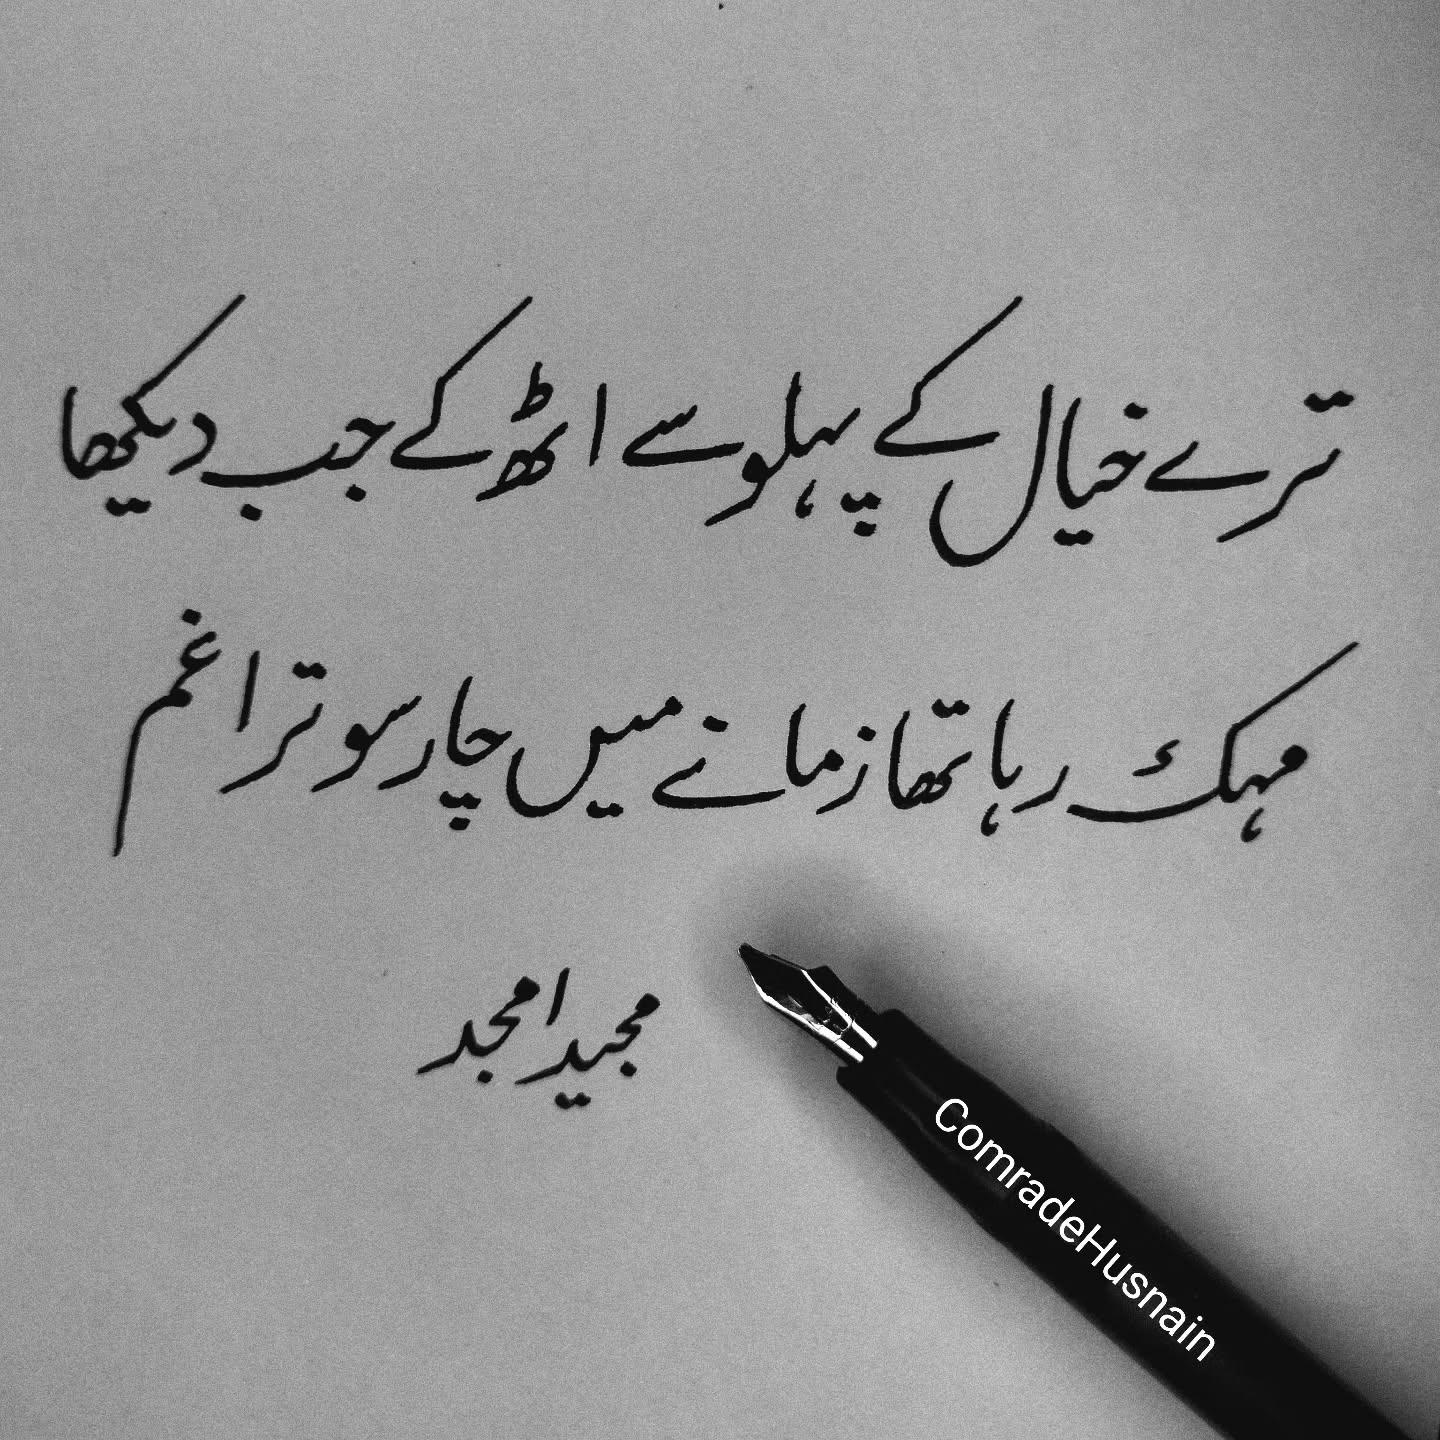 ترے خیال کے پہلو سے اٹھ کے جب دیکھا
مہک رہا تھا زمانے میں چار سو ترا غم
مجید امجد
ComradeHusnain